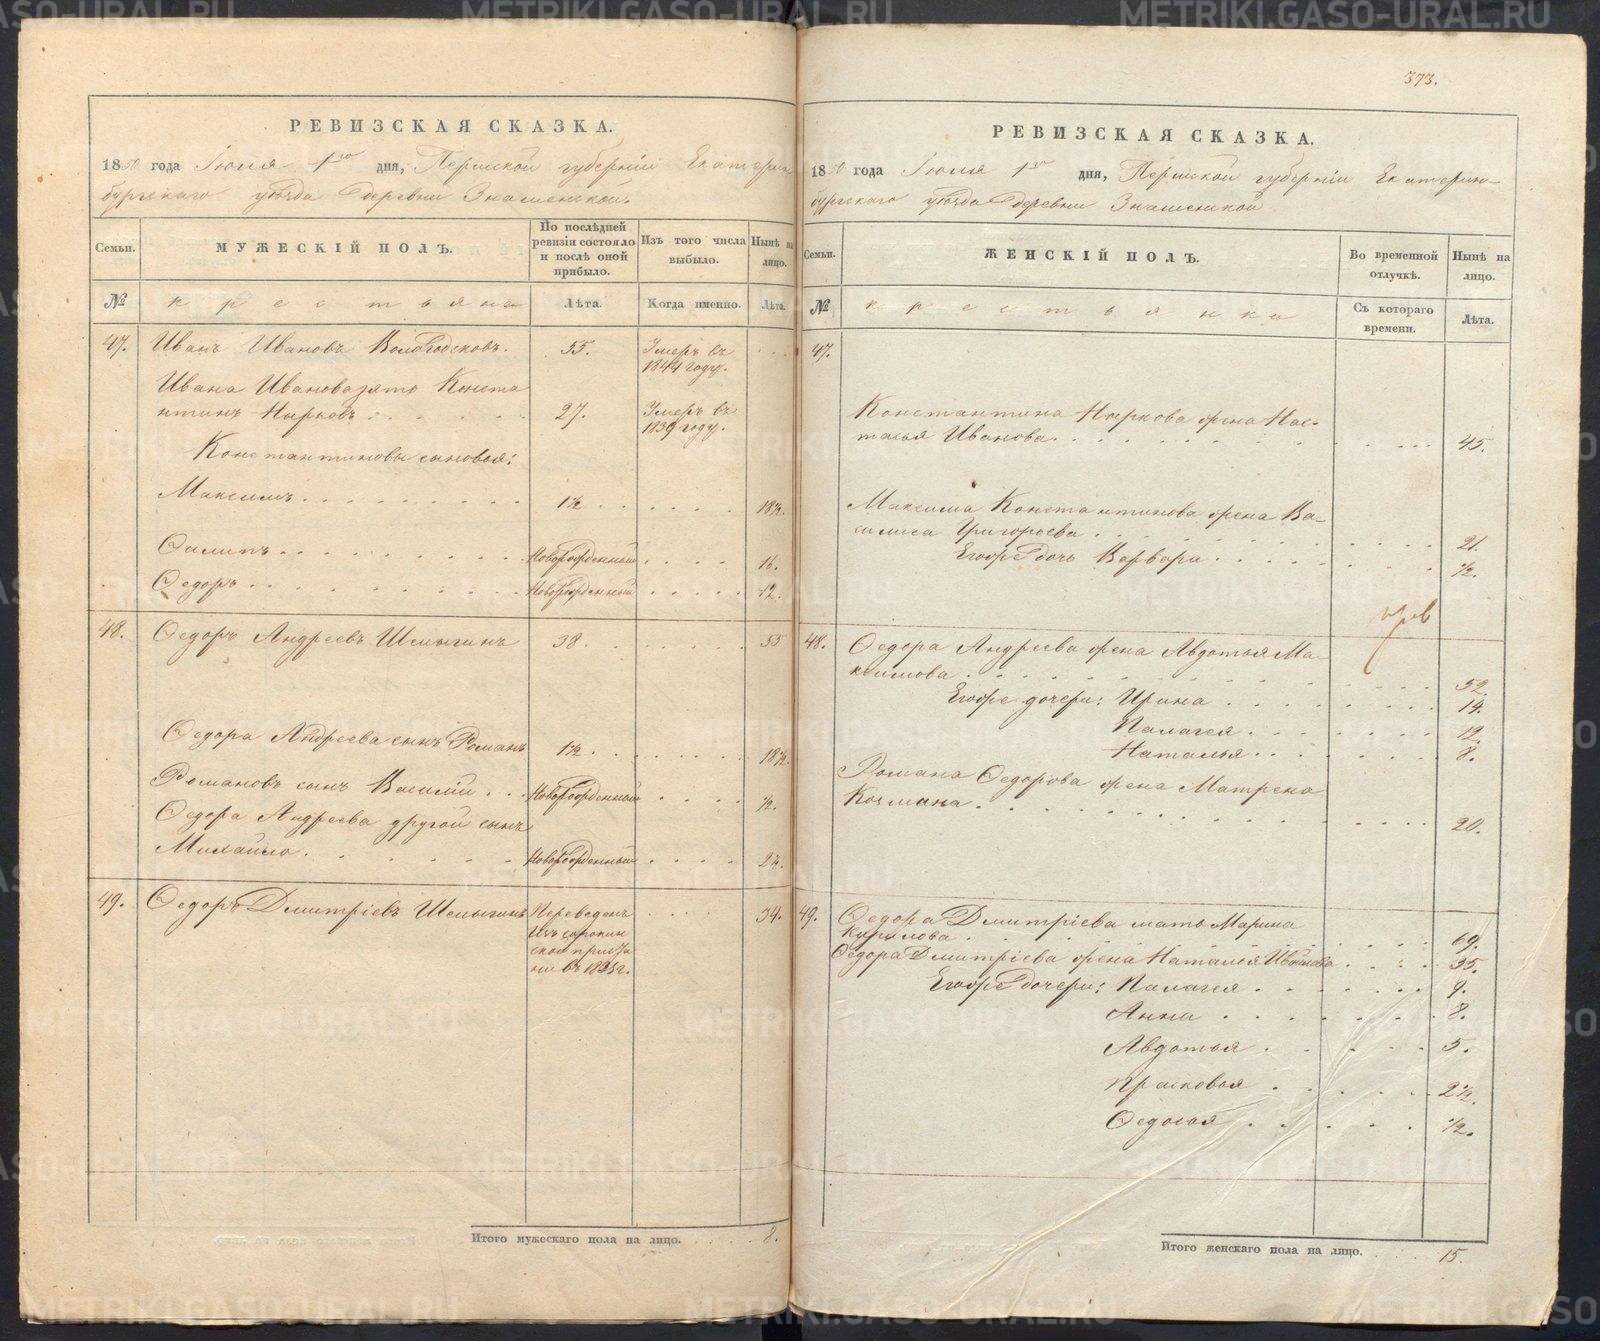 РЕВИЗСКАЯ СКАЗКА.
1850 года Іюня 1го дня, Пермской губерніи Екатерин
бургскаго уѣзда деревни Знаменской.
Семьи.
МУЖЕСКІЙ ПОЛЪ.
По послѣдней
ревизіи состояло
и послѣ оной
прибыло.
Изъ того числа
выбыло.
Нынѣ на
лицо.
№
крестьяне
Лѣта.
Когда именно.
Лѣта.
47. Иванъ Ивановъ Вологодсковъ. 55. Умеръ въ
1844 году.
Ивана Иванова зято Конста
нтинъ Нырковъ 27. Умеръ въ
1839 году.
Константиновы сыновья:
Максимъ 1½ 18½.
Филипъ Новорожденный 16.
Федоръ Новорожденный 12.
48. Федоръ Андреевъ Шмыгинъ 38. 55
Федора Андреева сынъ Романъ 1½ 18½.
Романовъ сынъ Василій Новорожденный ½.
Федора Андреева другой сынъ
Михайло Новорожденный 2½.
49. Федоръ Дмитріевъ Шмыгинъ Переведенъ 34.
изъ сорокин
ской
Итого мужескаго пола на лицо. 8.
373.
РЕВИЗСКАЯ СКАЗКА.
1850 года Іюня 1го дня, Пермской губерніи Екатерин-
бургскаго уѣзда деревни Знаменской
Семьи.
ЖЕНСКІЙ ПОЛЪ.
Во временной
отлучкѣ.
Нынѣ на
лицо.
№
крестьянки
Съ котораго
времени.
Лѣта.
47.
Константина Ныркова жена Нас-
тасья Иванова 45.
Максима Константинова жена Ва-
силиса Григорьева 21.
Егожъ дочь Варвара ½.
48. Федора Андреева жена Авдотья Ма-
ксимова 52.
Егожъ дочери: Ирина 14.
Палагея 12.
Наталья 8.
Романа Федорова жена Матрена
Козмина 20.
49. Федора Дмитріева мать Марина
Кирилова 69.
Федора Дмитріева жена Наталья Иванова 35.
Егожъ дочери: Палагея 9.
Анна 8.
Авдотья 5.
Прасковья 2½.
Федосья ½.
Итого женскаго пола на лицо. 15.
METRIKI.GASO-URAL.RU